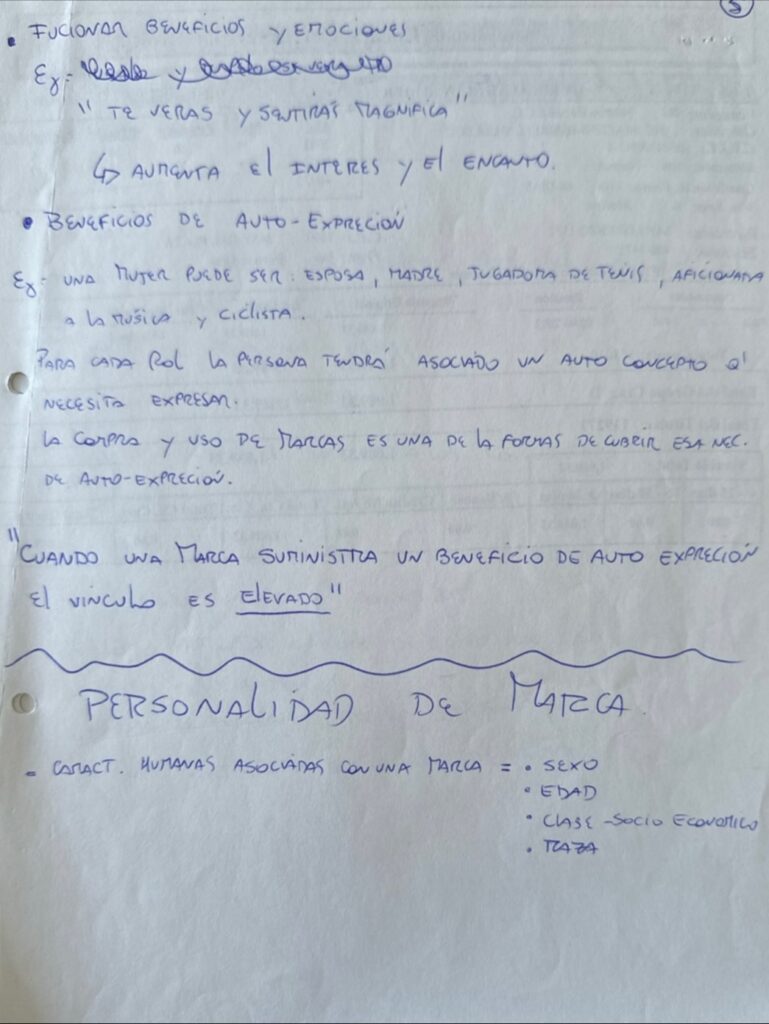 5
• FUCIONAR BENEFICIOS y EMOCIONES
Ej-
"TE VERAS y SENTIRAS MAGNIFICA"
↳ AUMENTA El INTERES y El ENCANTO.
• BENEFICIOS DE AUTO-EXPRECIÓN
Ej- UNA MUJER PUEDE SER: ESPOSA, MADRE, JUGADORA DE TENIS, AFICIONADA
A LA MUSICA y CICLISTA.
PARA CADA ROL LA PERSONA TENDRÁ ASOCIADO UN AUTO CONCEPTO Q'
NECESITA EXPRESAR.
LA COMPRA y USO DE MARCAS ES UNA DE LA FORMAS DE CUBRIR ESA NEC.
DE AUTO-EXPRECIÓN.
"CUANDO UNA MARCA SUMINISTRA UN BENEFICIO DE AUTO EXPRECIÓN
El VINCULO ES ElEVADO"
PERSONALIDAD DE MARCA.
- CARACT. HUMANAS ASOCIADAS CON UNA MARCA = • SEXO
• EDAD
• CLASE - SOCIO ECONOMICO
• RAZA